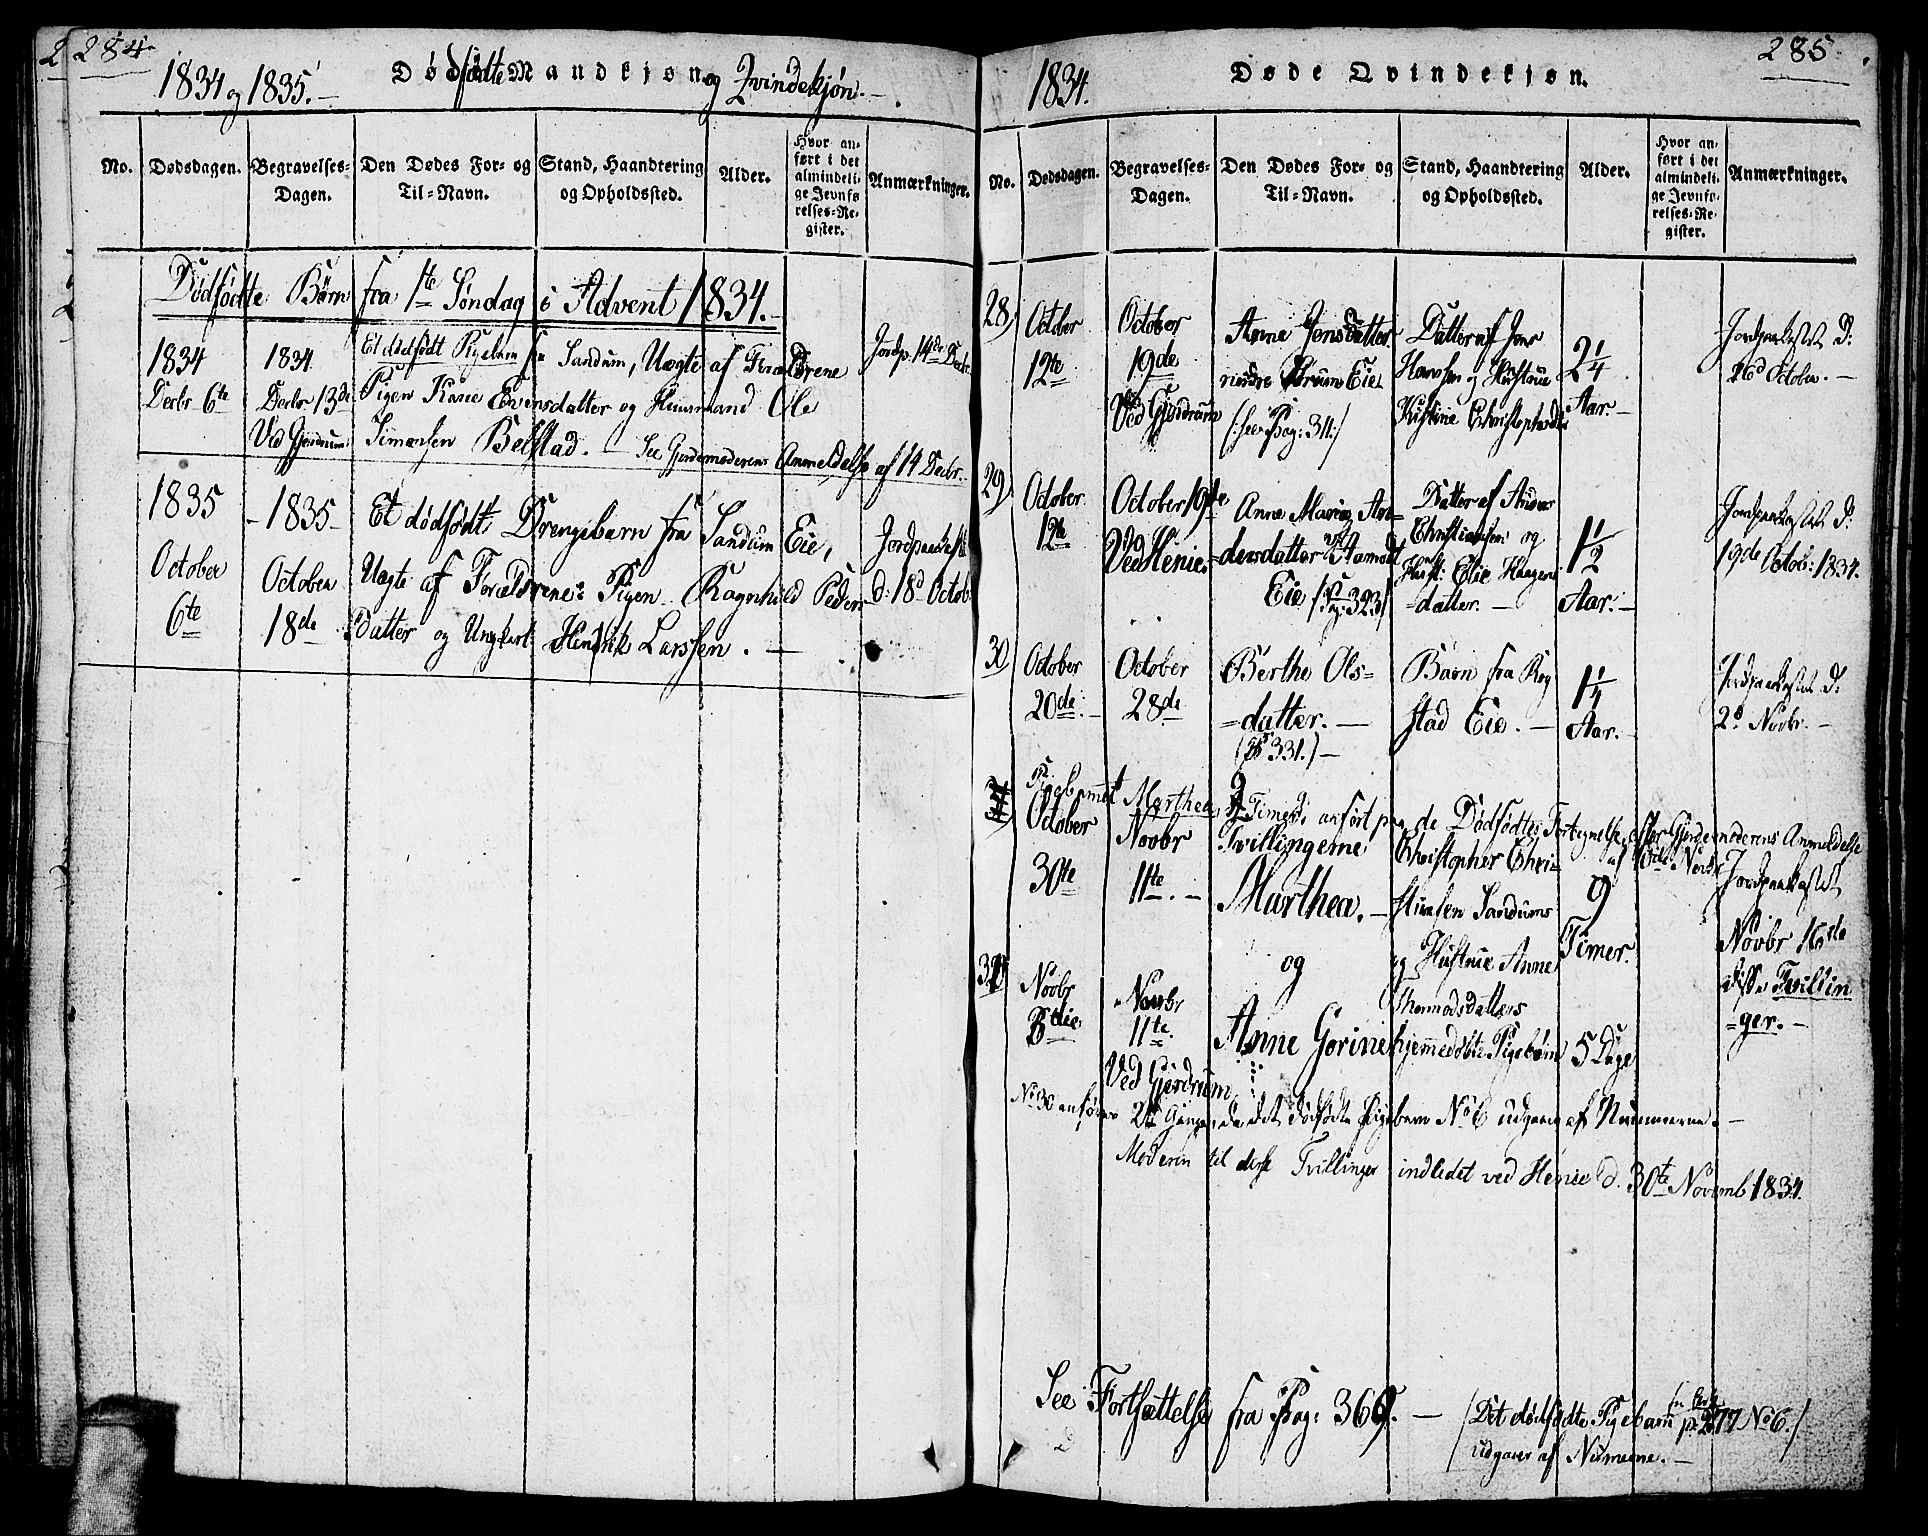 284
1834 og 1835. Dødfødte Mandkjøn og Qvindekjøn.
No. Dødsdagen. Begravelses-Dagen. Den Dødes For- og Til-Navn. Stand, Haandtering og Opholdssted. Alder. Hvor anført i det almindelige Jevnførelses-Register. Anmærkninger.
Dødfødte Børn fra 1te Søndag i Advent 1834.
1834 1834 Et dødfødt Pigebarn fra Sandum, Uægte af Forældrene Jordp. 14de Decbr.
Decbr 6te Decbr 13de Pigen Karie Evensdatter og Huusmand Ole
Ved Gjerdrum Simensen Bølstad. – See Gjordemoderens Anmeldelse af 14 Decbr.
1835 1835 Et dødfødt Drengebarn fra Sandum Eie, Jordpaakast
October October Uægte af Forældrene: Pigen Ragnhild Peders- d: 18d Octob.
6te 18de Datter og Ungkarl Hendrik Larssen. –
285
1834. Døde Qvindekjøn.
No. Dødsdagen. Begravelses-Dagen. Den Dødes For- og Til-Navn. Stand, Haandtering og Opholdssted. Alder. Hvor anført i det almindelige Jevnførelses-Register. Anmærkninger.
28) October October Anne Jensdatter Datter af Jens Jordpaakastet D:
12te 19de Eie og Hustrue 2 1/4 26d October. –
Ved Gjerdrum (:see Pag: 311:) Kistine Christophersdtr Aar. –
29) October October 19de Anne Marie An- Datter af Anders Jordpaakastet D:
12te Ved Henie. =dersdatter Aamodt Christiansen og 1 1/2 19de Octob: 1834.
Eie /Pag: 323/ Hust: Elie Haagens
=datter. – Aar. –
30) October October Berthe Ols= Barn fra Rog 1 1/4 Jordpaakastet D:
20de. – 28de =datter. – stad Eie. – Aar. – 2d Novbr. –
(331.) –
Pigebarnet Marthea, 9 Timer, anført paa de Dødfødtes Fortegnelse, efter Gjordemoderens Anmeldelse
31) October Novbr Tvillingerne Christopher Chri= af Novbr
30te 11te. – Marthea. – stiansen Sandums 9 Jordpaakastet
og og Hustrue Anne Timer. Novbr 16de
32) Novbr Novbr Thormodsdatters disse Tvillin
5die 11te. Anne Gorine hjemmedøbte Pigebørn 5 Dage =ger. –
Ved Gjerdrum
No 30 anføres 2de Gange, da det dødfødte Pigebarn No 6 udgaaer af Nummerne. –
Moderen til disse Tvillinger indledet ved Henie d. 30te Novemb 1834.
See Fortsættelse fra Pag: 369. – /Det dødfødte Pigebarn p. 277 No 6./
udgaaer af Numerne. –